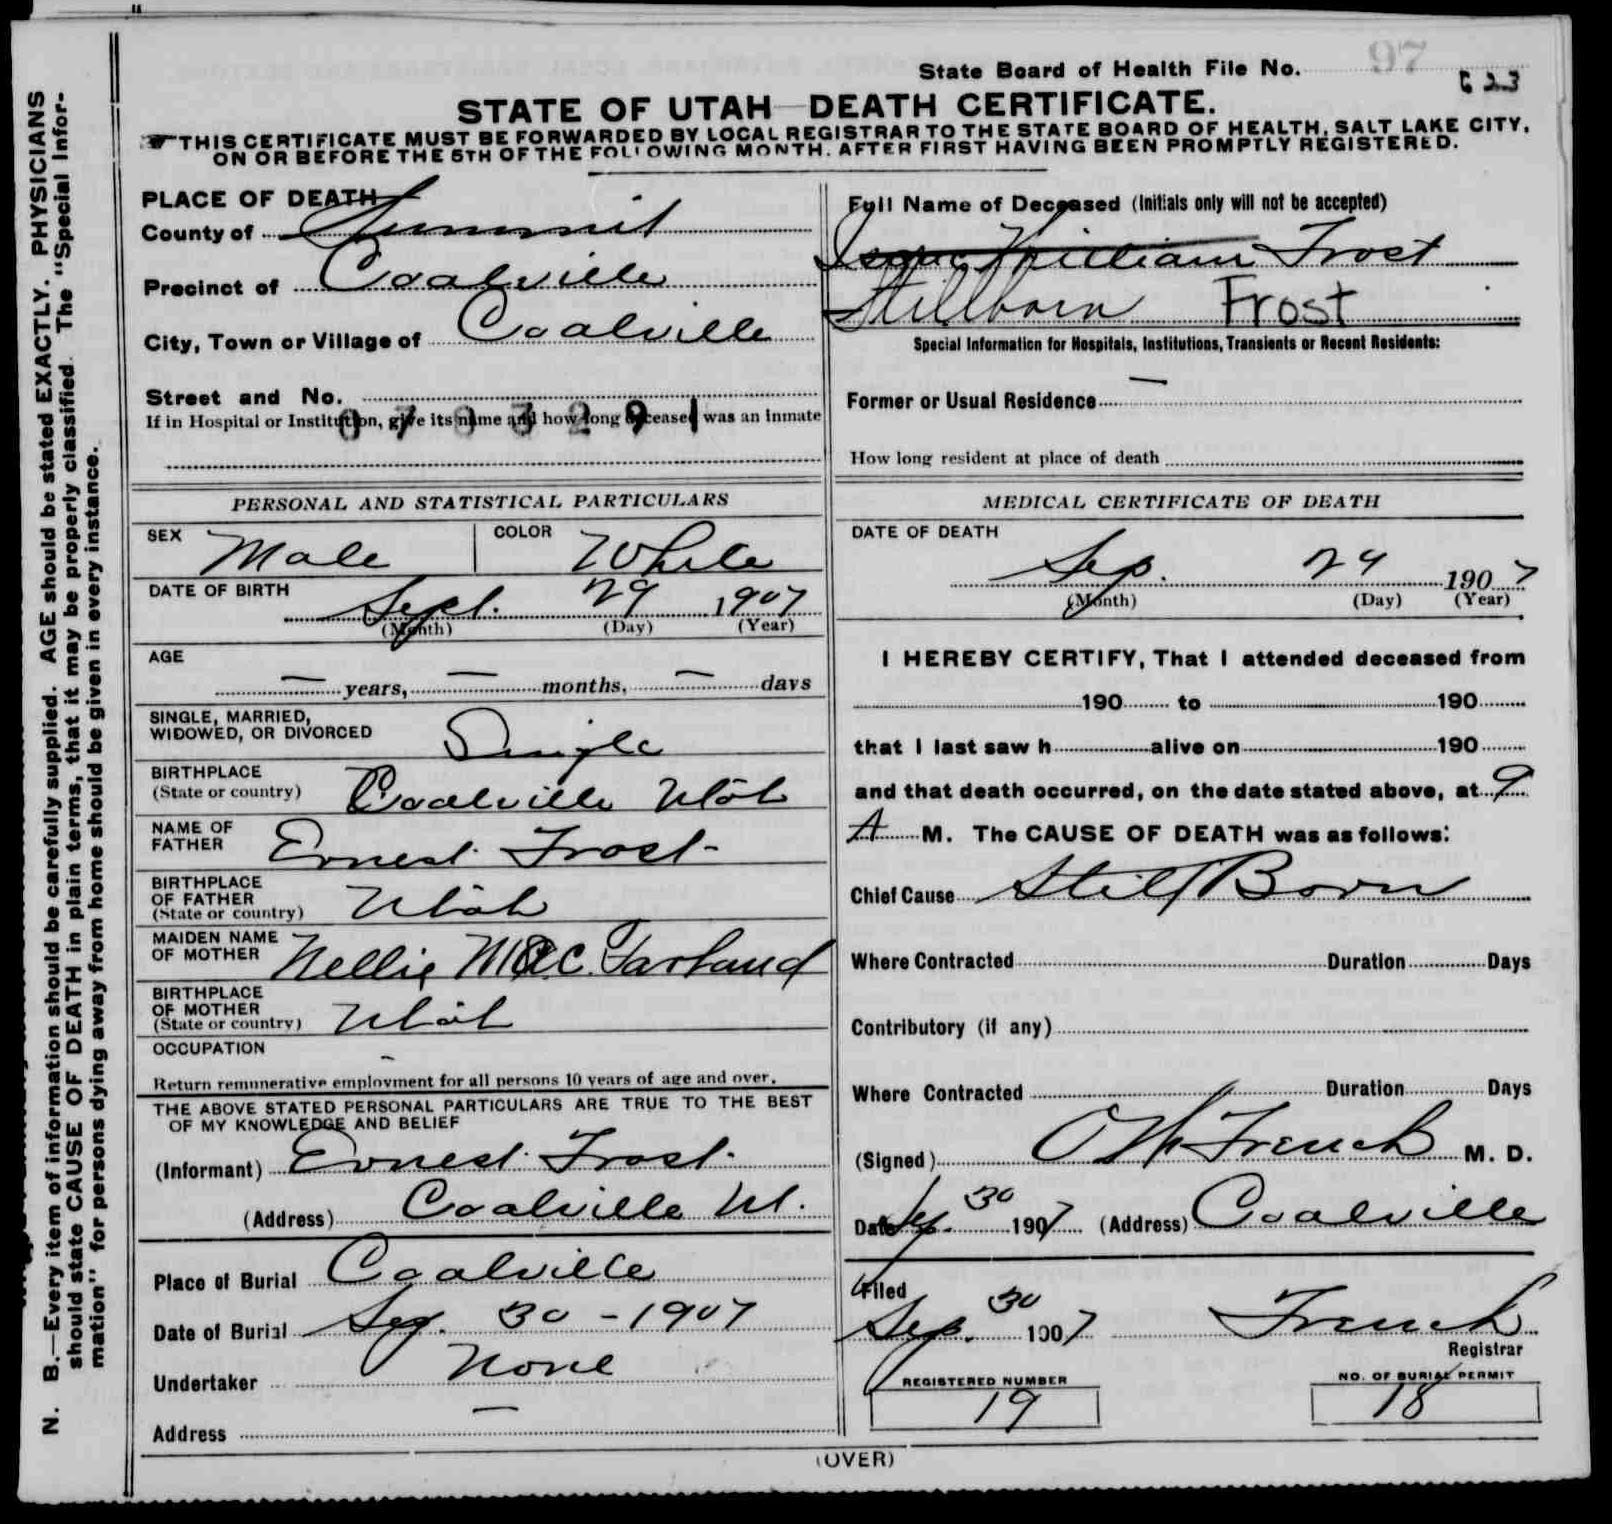 97
State Board of Health File No. 623
STATE OF UTAH—DEATH CERTIFICATE.
☛THIS CERTIFICATE MUST BE FORWARDED BY LOCAL REGISTRAR TO THE STATE BOARD OF HEALTH, SALT LAKE CITY,
ON OR BEFORE THE 5TH OF THE FOLLOWING MONTH. AFTER FIRST HAVING BEEN PROMPTLY REGISTERED.
N. B.—Every item of information should be carefully supplied. AGE should be stated EXACTLY. PHYSICIANS
should state CAUSE OF DEATH in plain terms, that it may be properly classified. The "Special Infor-
mation" for persons dying away from home should be given in every instance.
PLACE OF DEATH
County of Summit
Precinct of Coalville
City, Town or Village of Coalville
Street and No.
If in Hospital or Institution, give its name and how long deceased was an inmate
0703291
Full Name of Deceased (Initials only will not be accepted)
William Frost
Stillborn Frost
Special Information for Hospitals, Institutions, Transients or Recent Residents:
Former or Usual Residence —
How long resident at place of death
PERSONAL AND STATISTICAL PARTICULARS
SEX Male COLOR White
DATE OF BIRTH
Sept. 29 1907
(Month) (Day) (Year)
AGE
— years, — months, — days
SINGLE, MARRIED,
WIDOWED, OR DIVORCED Single
BIRTHPLACE
(State or country) Coalville Utah
NAME OF
FATHER Ernest Frost
BIRTHPLACE
OF FATHER
(State or country) Utah
MAIDEN NAME
OF MOTHER Nellie McFarland
BIRTHPLACE
OF MOTHER
(State or country) Utah
OCCUPATION -
Return remunerative employment for all persons 10 years of age and over.
THE ABOVE STATED PERSONAL PARTICULARS ARE TRUE TO THE BEST
OF MY KNOWLEDGE AND BELIEF
(Informant) Ernest Frost.
(Address) Coalville Ut.
Place of Burial Coalville
Date of Burial Sep. 30 - 1907
Undertaker None
Address —
MEDICAL CERTIFICATE OF DEATH
DATE OF DEATH
Sep. 29 1907
(Month) (Day) (Year)
I HEREBY CERTIFY, That I attended deceased from
190 to 190
that I last saw h alive on 190
and that death occurred, on the date stated above, at 9
A M. The CAUSE OF DEATH was as follows:
Chief Cause Still Born
Where Contracted Duration Days
Contributory (if any)
Where Contracted Duration Days
(Signed) French M. D.
Date Sep. 30 1907 (Address) Coalville
Filed
Sep. 30 1907 French
Registrar
REGISTERED NUMBER
19
NO. OF BURIAL PERMIT
18
(OVER)